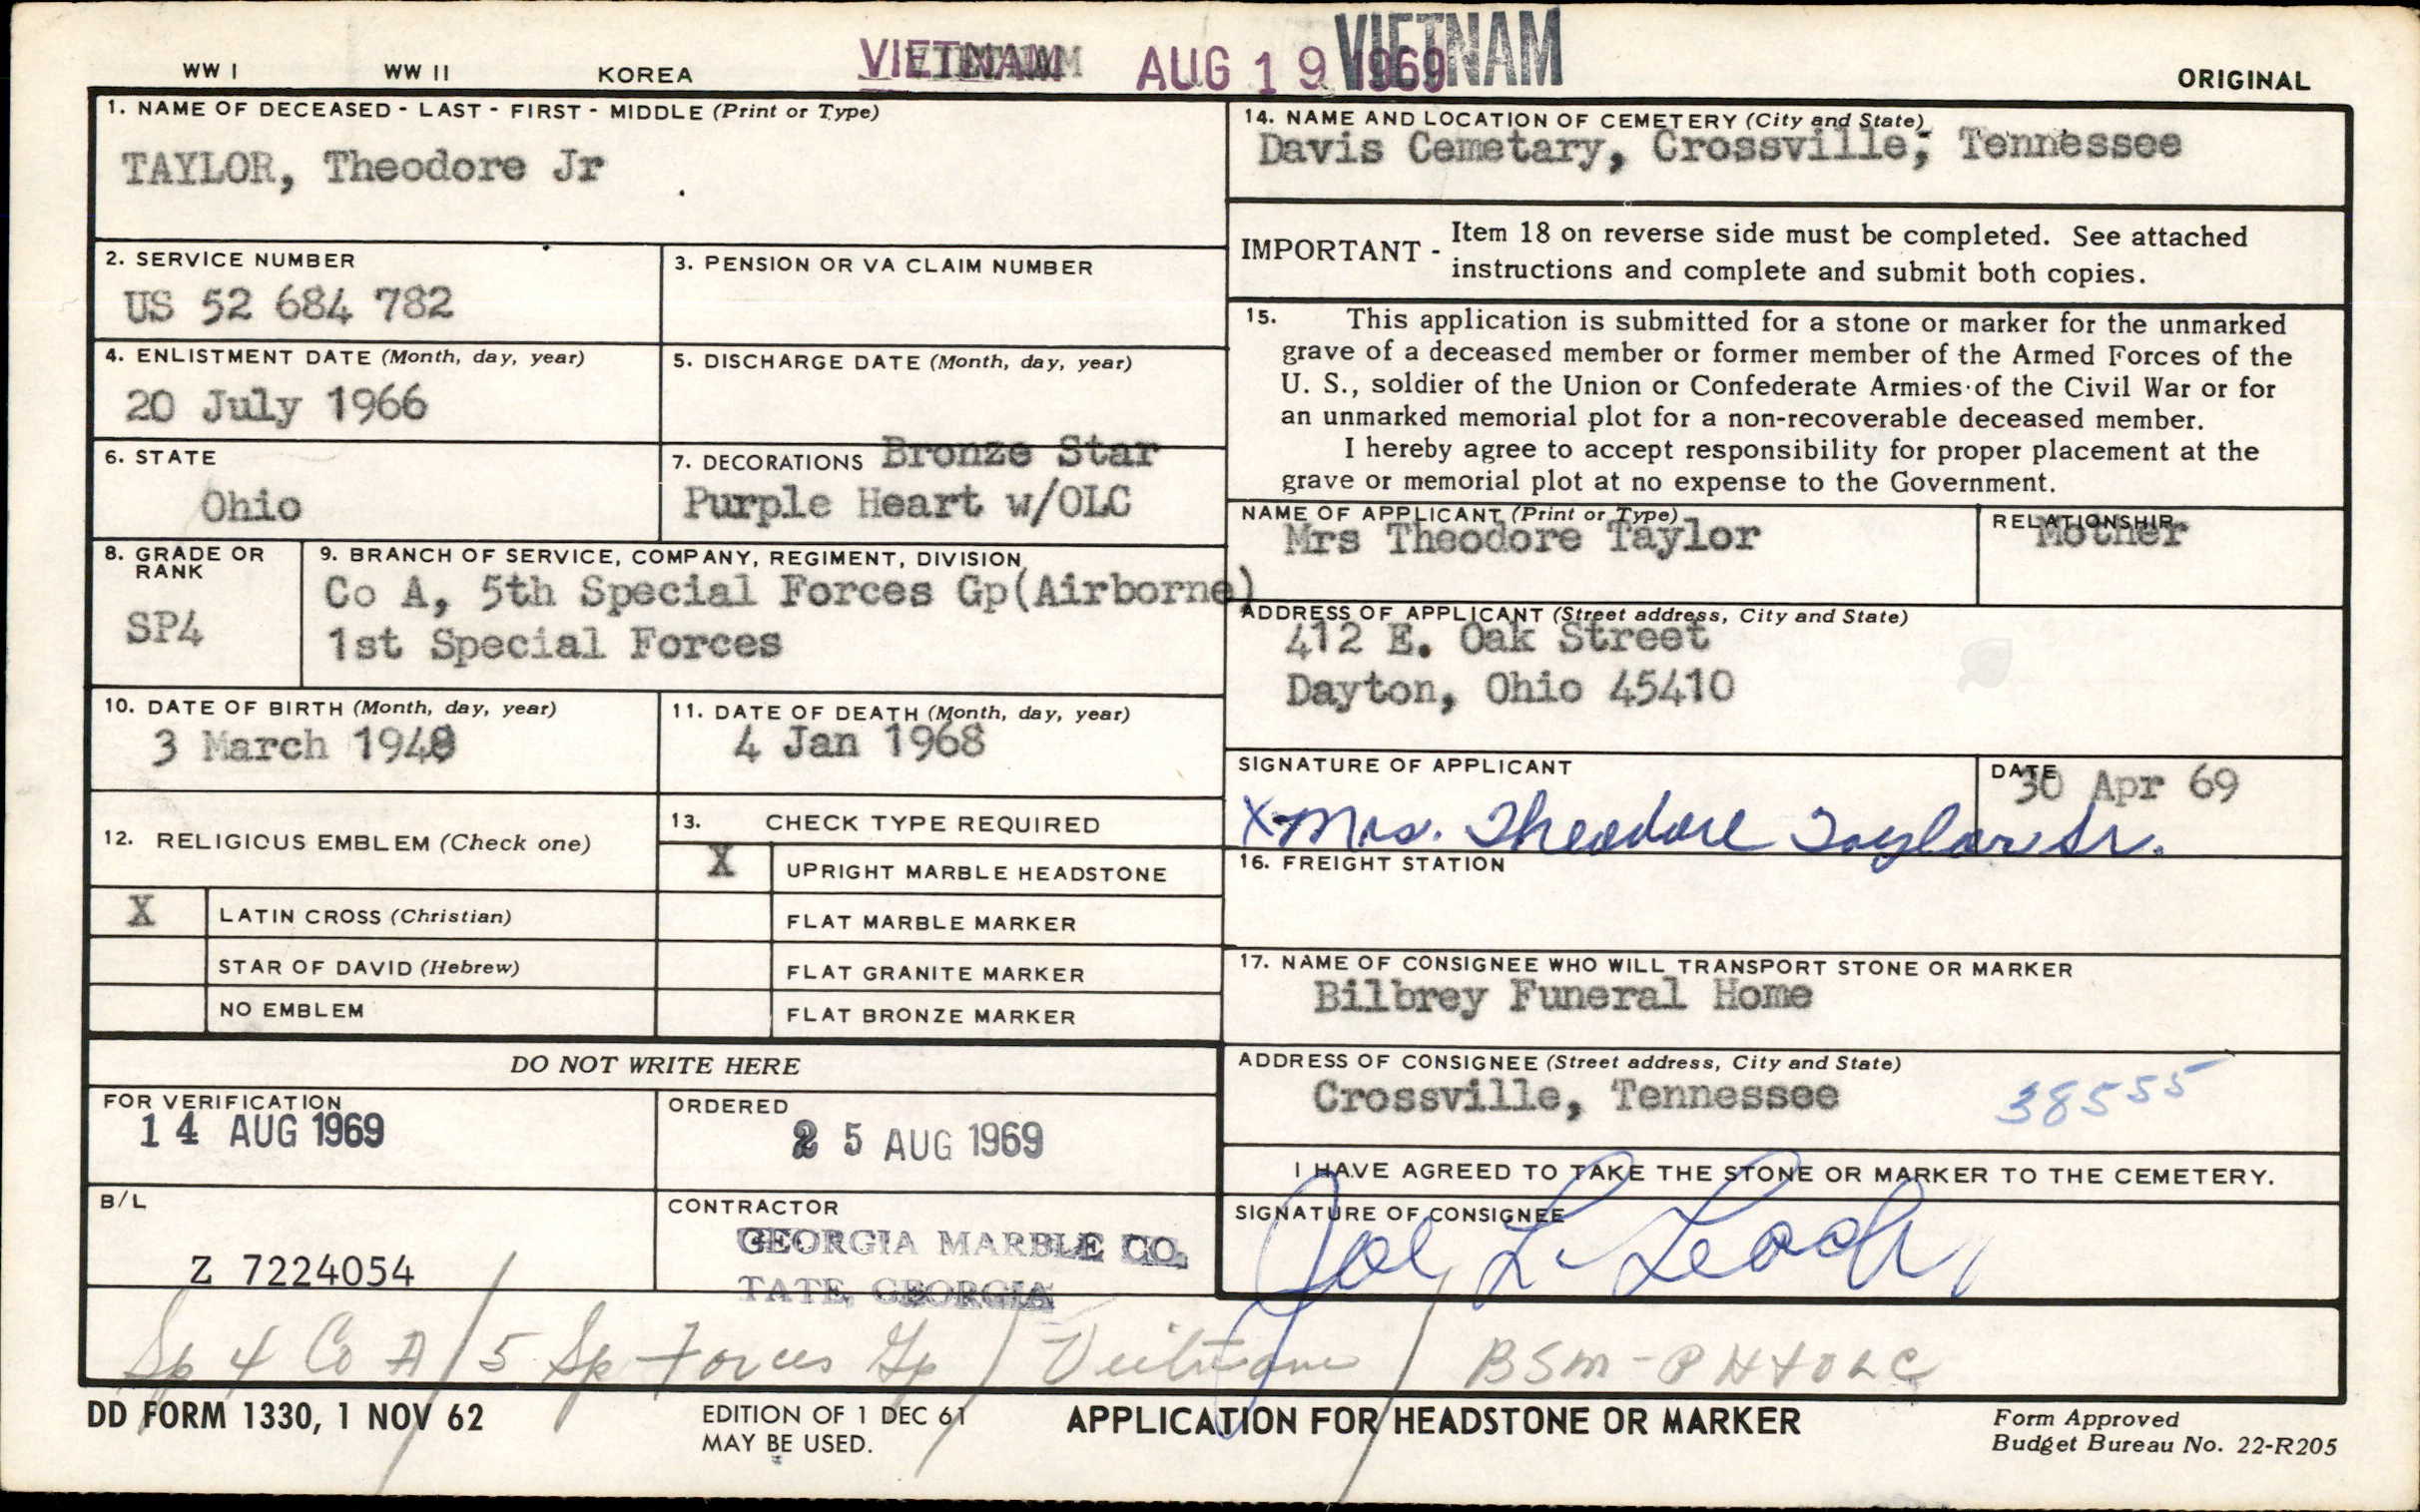 WW I WW II KOREA VIETNAM AUG 19 1969 VIETNAM ORIGINAL
1. NAME OF DECEASED - LAST - FIRST - MIDDLE (Print or Type)
TAYLOR, Theodore Jr
2. SERVICE NUMBER
US 52 684 782
3. PENSION OR VA CLAIM NUMBER
4. ENLISTMENT DATE (Month, day, year)
20 July 1966
5. DISCHARGE DATE (Month, day, year)
6. STATE
Ohio
7. DECORATIONS Bronze Star
Purple Heart w/OLC
8. GRADE OR
RANK
SP4
9. BRANCH OF SERVICE, COMPANY, REGIMENT, DIVISION
Co A, 5th Special Forces Gp(Airborne)
1st Special Forces
10. DATE OF BIRTH (Month, day, year)
3 March 1948
11. DATE OF DEATH (Month, day, year)
4 Jan 1968
12. RELIGIOUS EMBLEM (Check one)
X LATIN CROSS (Christian)
STAR OF DAVID (Hebrew)
NO EMBLEM
13. CHECK TYPE REQUIRED
X UPRIGHT MARBLE HEADSTONE
FLAT MARBLE MARKER
FLAT GRANITE MARKER
FLAT BRONZE MARKER
DO NOT WRITE HERE
FOR VERIFICATION
14 AUG 1969
ORDERED
25 AUG 1969
B/L
Z 7224054
CONTRACTOR
GEORGIA MARBLE CO.
TATE, GEORGIA
14. NAME AND LOCATION OF CEMETERY (City and State)
Davis Cemetary, Crossville, Tennessee
IMPORTANT - Item 18 on reverse side must be completed. See attached
instructions and complete and submit both copies.
15. This application is submitted for a stone or marker for the unmarked
grave of a deceased member or former member of the Armed Forces of the
U. S., soldier of the Union or Confederate Armies of the Civil War or for
an unmarked memorial plot for a non-recoverable deceased member.
I hereby agree to accept responsibility for proper placement at the
grave or memorial plot at no expense to the Government.
NAME OF APPLICANT (Print or Type)
Mrs Theodore Taylor
RELATIONSHIP
Mother
ADDRESS OF APPLICANT (Street address, City and State)
412 E. Oak Street
Dayton, Ohio 45410
SIGNATURE OF APPLICANT
X Mrs. Theodore Taylor Sr.
DATE
30 Apr 69
16. FREIGHT STATION
17. NAME OF CONSIGNEE WHO WILL TRANSPORT STONE OR MARKER
Bilbrey Funeral Home
ADDRESS OF CONSIGNEE (Street address, City and State)
Crossville, Tennessee 38555
I HAVE AGREED TO TAKE THE STONE OR MARKER TO THE CEMETERY.
SIGNATURE OF CONSIGNEE
Joe L. Leach
Sp 4 Co A/5 Sp Forces Gp / Vietnam / BSM-PH+OLC
DD FORM 1330, 1 NOV 62
EDITION OF 1 DEC 61
MAY BE USED.
APPLICATION FOR HEADSTONE OR MARKER
Form Approved
Budget Bureau No. 22-R205